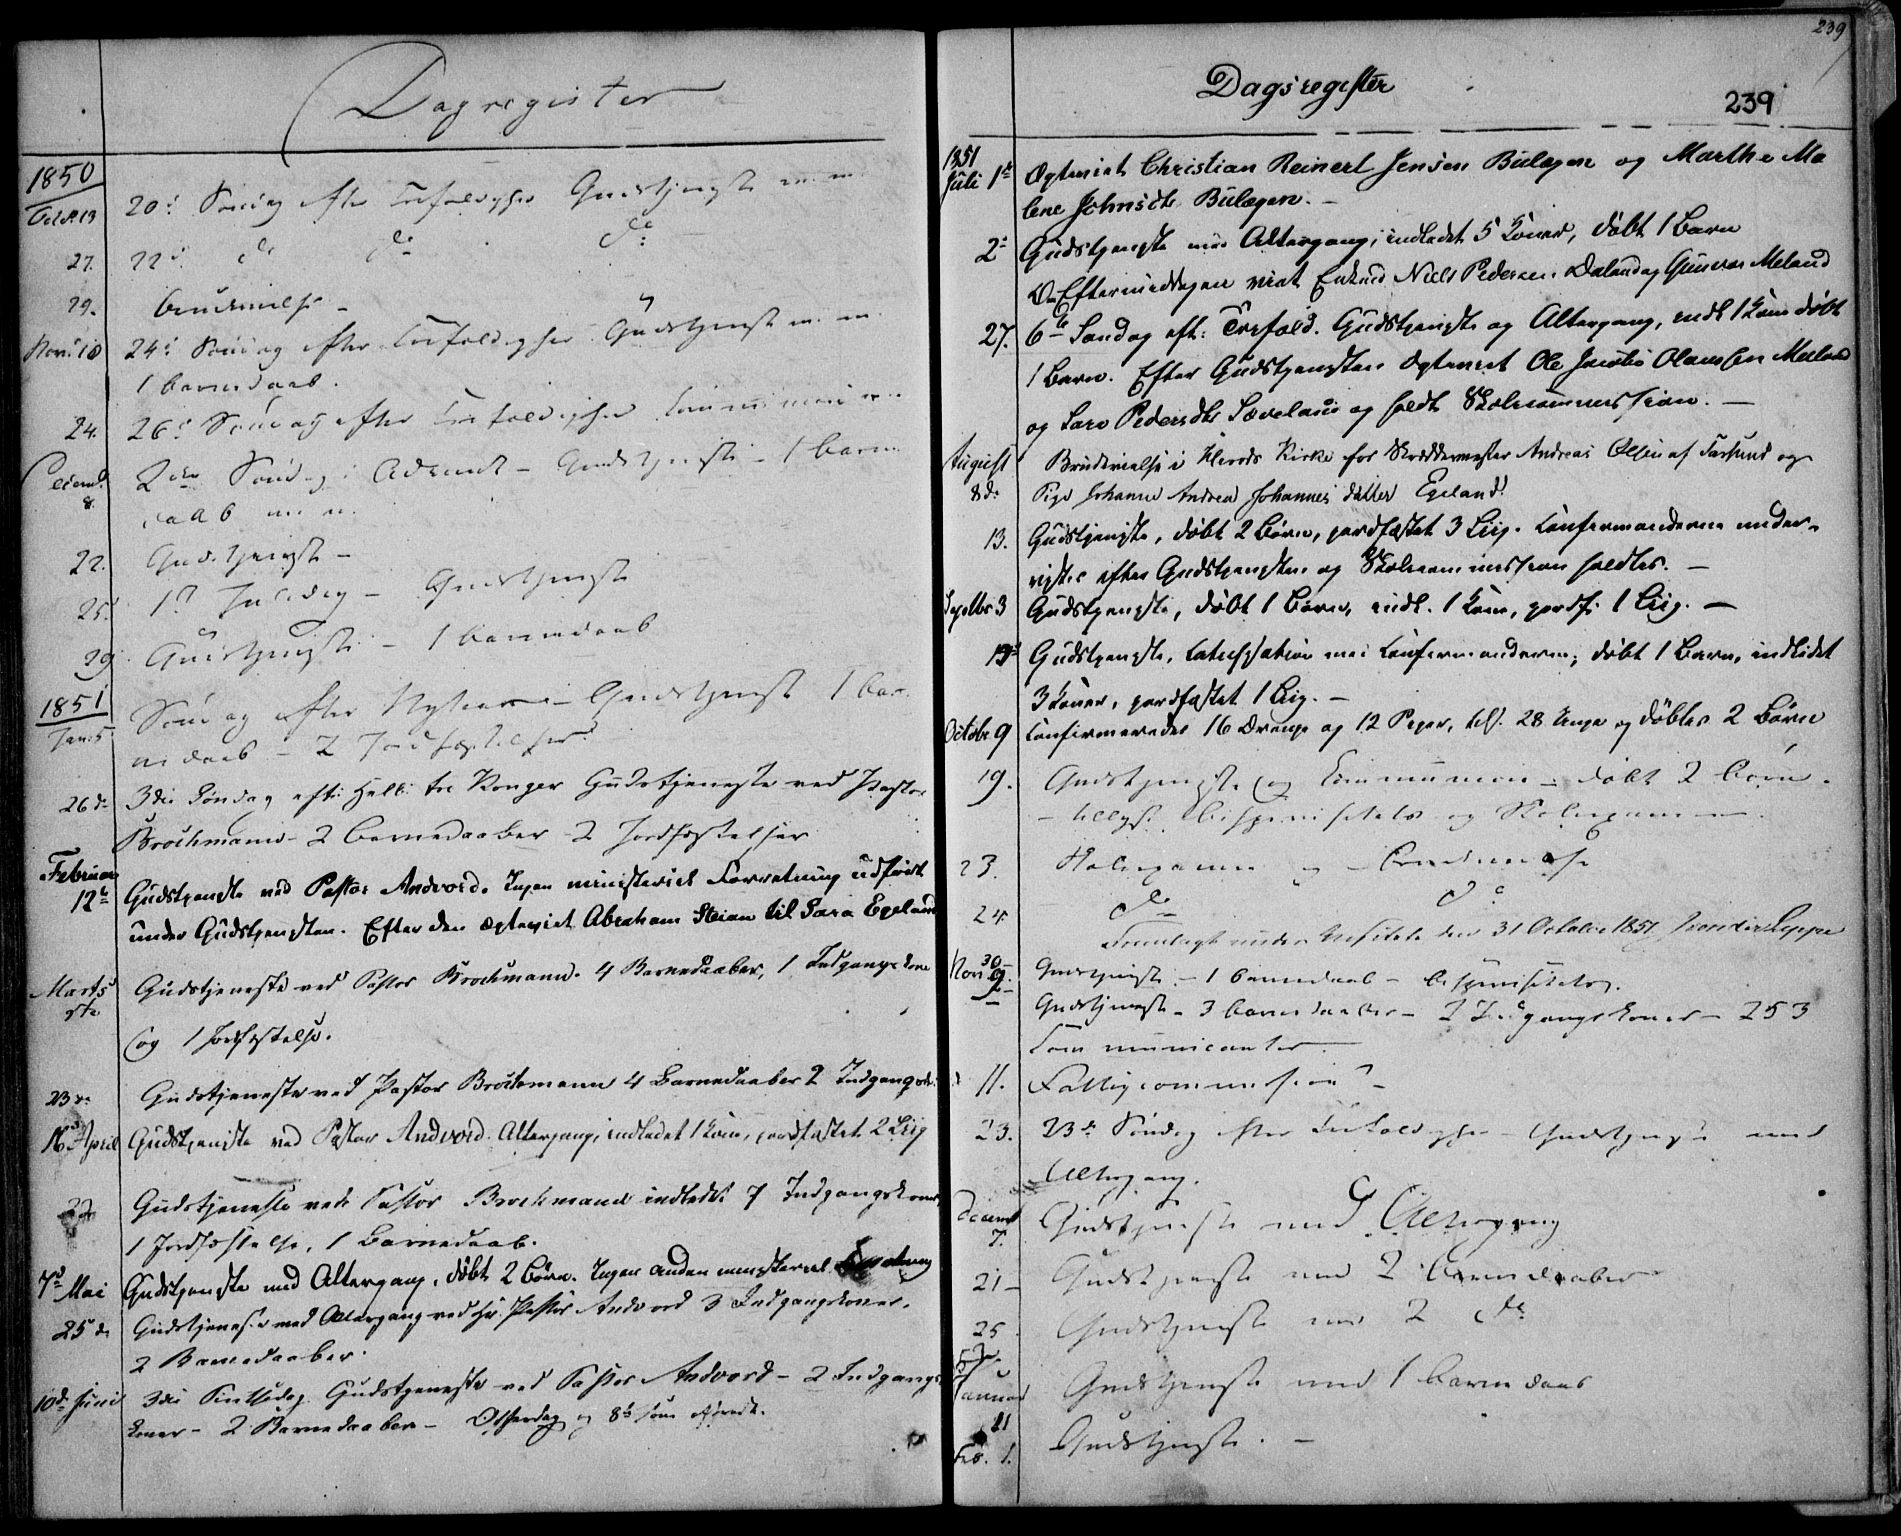 Dagregister
1850
Octbr. 13 20d Søndag efter Trefoldighed Gudstjeneste m. m.
27. 22d do do do
29. Brudevielse –
Novb. 10 24d Søndag efter Trefoldighed Gudstjeneste m. m.
1 Barnedaab.
24. 26d Søndag efter Trefoldighed Communion m.
Decemb. 8. 2den Søndag i Advent – Gudstjeneste – 1 Barne
daab m. m.
22. Gudstjeneste –
25. 1ste Juledag – Gudstjeneste
29 Gudstjeneste – 1 Barnedaab
1851
Jan. 5 Søndag efter Nytaar – Gudstjeneste 1 Bar
nedaab – 2 Jordfæstelser
26de 3die Søndag eft. Hell. tre Konger Gudstjeneste ved Pastor
Brochmann – 2 Barnedaaber – 2 Jordfæstelser
Februar
12te Gudstjeneste ved Pastor Andvord. Ingen ministeriel Forretning udført
under Gudstjenesten. Efter den ægteviet Abraham Stian til Sara Egeland
Marts
9de Gudstjeneste ved Pastor Brochmann. 4 Barnedaaber, 1 Indgangskone
og 1 Jordfæstelse.
23de Gudstjeneste ved Pastor Brochmann 4 Barnedaaber 2 Indgangsk.
16d April Gudstjeneste ved Pastor Andvord. Altergang, indledet 1 Kone, jordfæstet 2 Liig
Gudstjeneste ved Pastor Brochmann indledet 7 Indgangskoner,
1 Jordfæstelse, 1 Barnedaab.
7d Mai Gudstjeneste med Altergang, døbt 2 Børn. Ingen anden ministeriel Forretning
25de Gudstjeneste med Altergang ved Hr. Pastor Andvord 3 Indgangskoner.
2 Barnedaaber.
10d Juni 3die Pintsedag Gudstjeneste ved Pastor Andvord – 2 Indgangs
koner – 2 Barnedaaber –
239
Dagsregister
239
1851
Juli 1ste Ægteviet Christian Reinert Jensen Bulægen og Marthe Ma
lene Johnsdtr Bulægen. –
2d Gudstjeneste med Altergang, indledet 5 Koner, døbt 1 Barn
Om Eftermiddagen viet Enkmd Niels Pedersen Daland og Gunvor Meland
27. 6te Søndag eft: Trefold. Gudstjeneste og Altergang, indl 1 Kone døbt
1 Barn. Efter Gudstjenesten ægteviet Ole Jacob Olaussen Meland
og Sara Pedersdtr Sæveland og holdt Skolecommission. –
August
8de Brudevielse i Herods Kirke for Skreddermester Andreas Olsen af Farsund og
Pige Johanne Andrea Johannes datter Egeland.
13. Gudstjeneste, døbt 2 Børn, jordfæstet 3 Liig. Confirmanderne under-
vistes efter Gudstjenesten og Skolecommission holdtes. –
Septbr 3 Gudstjeneste, døbt 1 Barn, indl. 1 Kone, jordf: 1 Liig. –
Gudstjeneste, Catechisation med Confirmanderne; døbt 1 Barn, indledet
3 Koner, jordfæstet 1 Liig. –
Octobr 9 Confirmeredes 16 Drenge og 12 Piger, tils. 28 Unge og døbtes 2 Børn
19. Gudstjeneste og Communion – døbt 2 Børn.
– tillige Bispevisitats og Skoleexamen
23. Skoleexamen og Brudevielse
24 do do
Fremlagt under Visitats den 31 October 1851
30 Gudstjeneste – 1 Barnedaab – Bispevisitats.
Nov 9. Gudstjeneste – 3 Barnedaaber – 2 Indgangskoner – 253
Communicanter –
11. Fattigcommission –
23. 23de Søndag efter Trefoldighed – Gudstjeneste med
Altergang.
Decemb
7. Gudstjeneste med Altergang
21 – Gudstjeneste med 2 Barnedaaber
25 Gudstjeneste med 2 do
52
Januar
11 Gudstjeneste med 1 Barnedaab
Feb. 1. Gudstjeneste. –